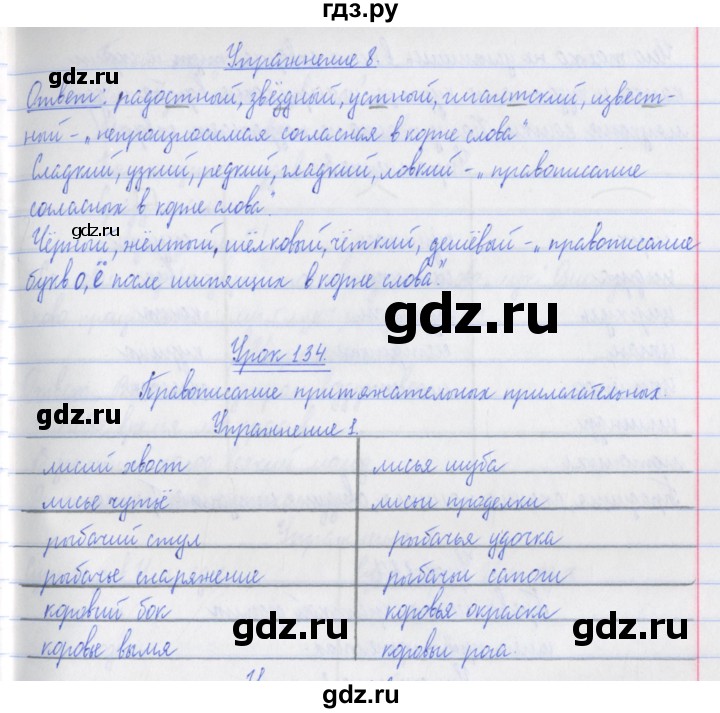 гдз.ру
Упражнение 8.
Ответ: радостный, звёздный, устный, гигантский, извест-
ный - „непроизносимая согласная в корне слова"
Сладкий, узкий, редкий, гладкий, ловкий - „правописание
согласных в корне слова".
gdz.ru
Чёрный, жёлтый, шёлковый, чёткий, дешёвый - „правописание
букв о, ё после шипящих в корне слова."
gdz.ru
Урок 134.
Правописание притяжательных прилагательных.
gdz.ru
gdz.ru
Упражнение 1.
лисий хвост лисья шуба
лисье чутьё лисьи проделки
рыбачий стул рыбачья удочка
рыбачье снаряжение рыбачьи сапоги
коровий бок коровья окраска
gdz.ru gdz.ru
коровье вымя коровьи рога
gdz.ru